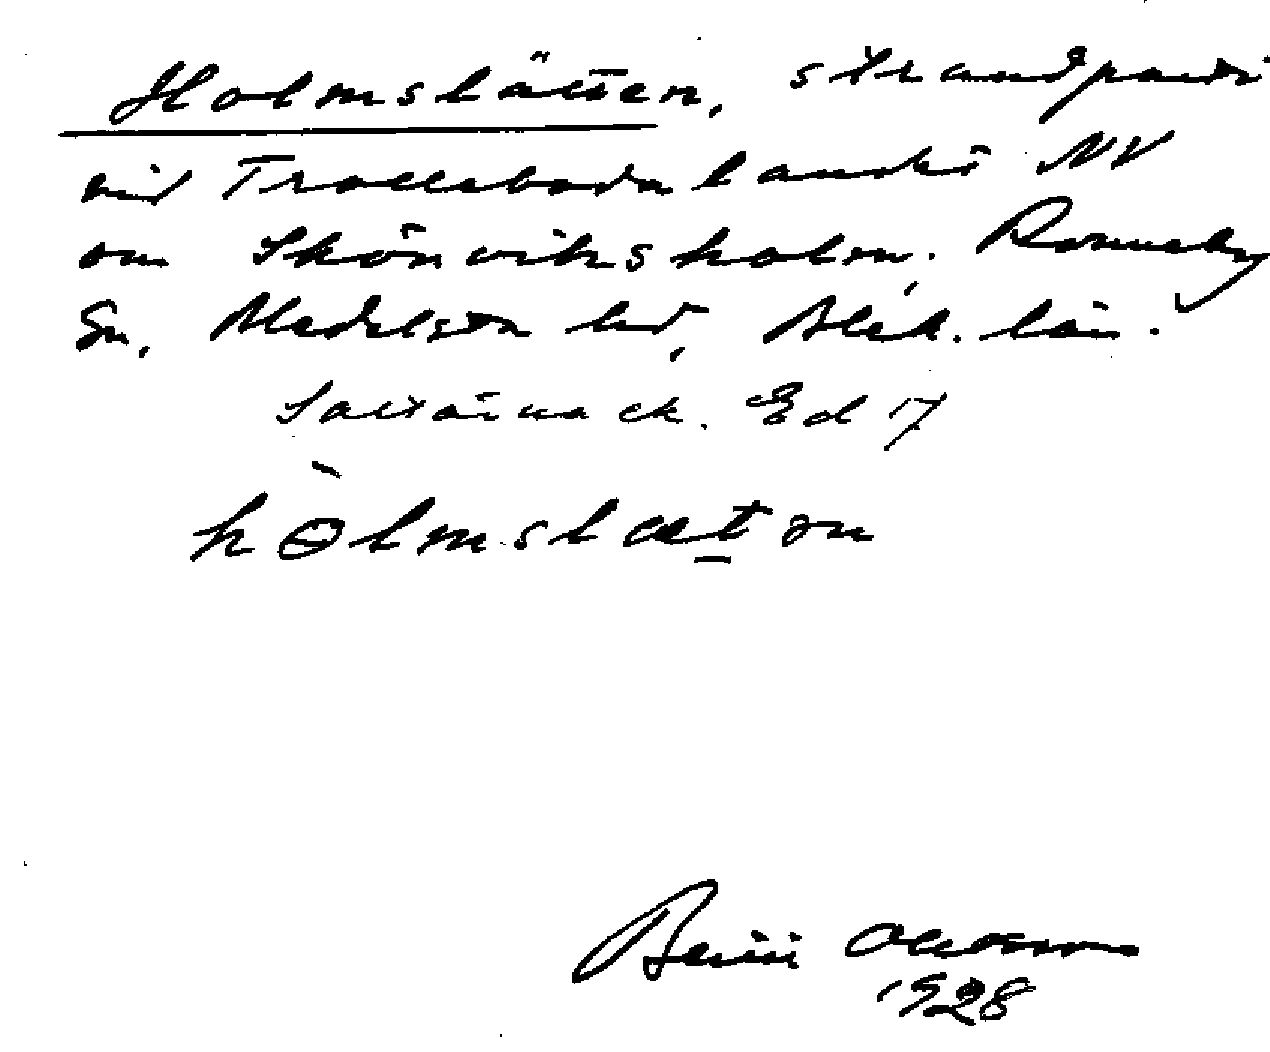 Holmslätten, strandparti
vid Trolleboda landet NV
om Skönviksholm, Ronneby
Sn, Medelsta hd, Blek. län.
Saltärna ek. Ed 7
hɵ̀lmslætən
Olsson
1928